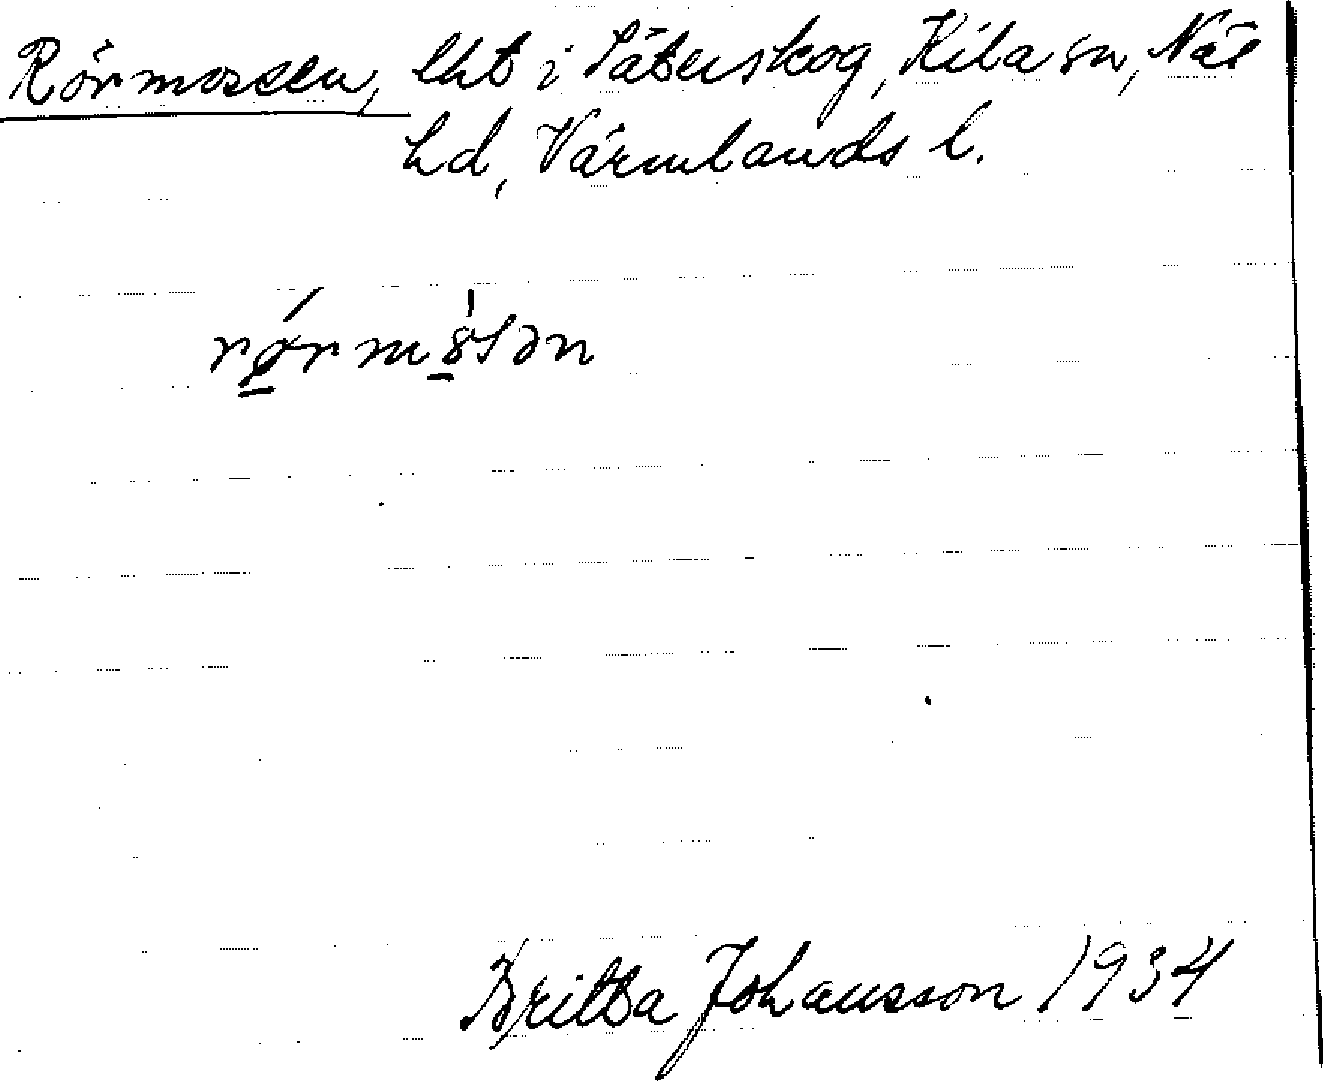 Rörmossen, lht i Säterskog, Kila sn, Näs
hd, Värmlands l.
Britta Johansson 1934